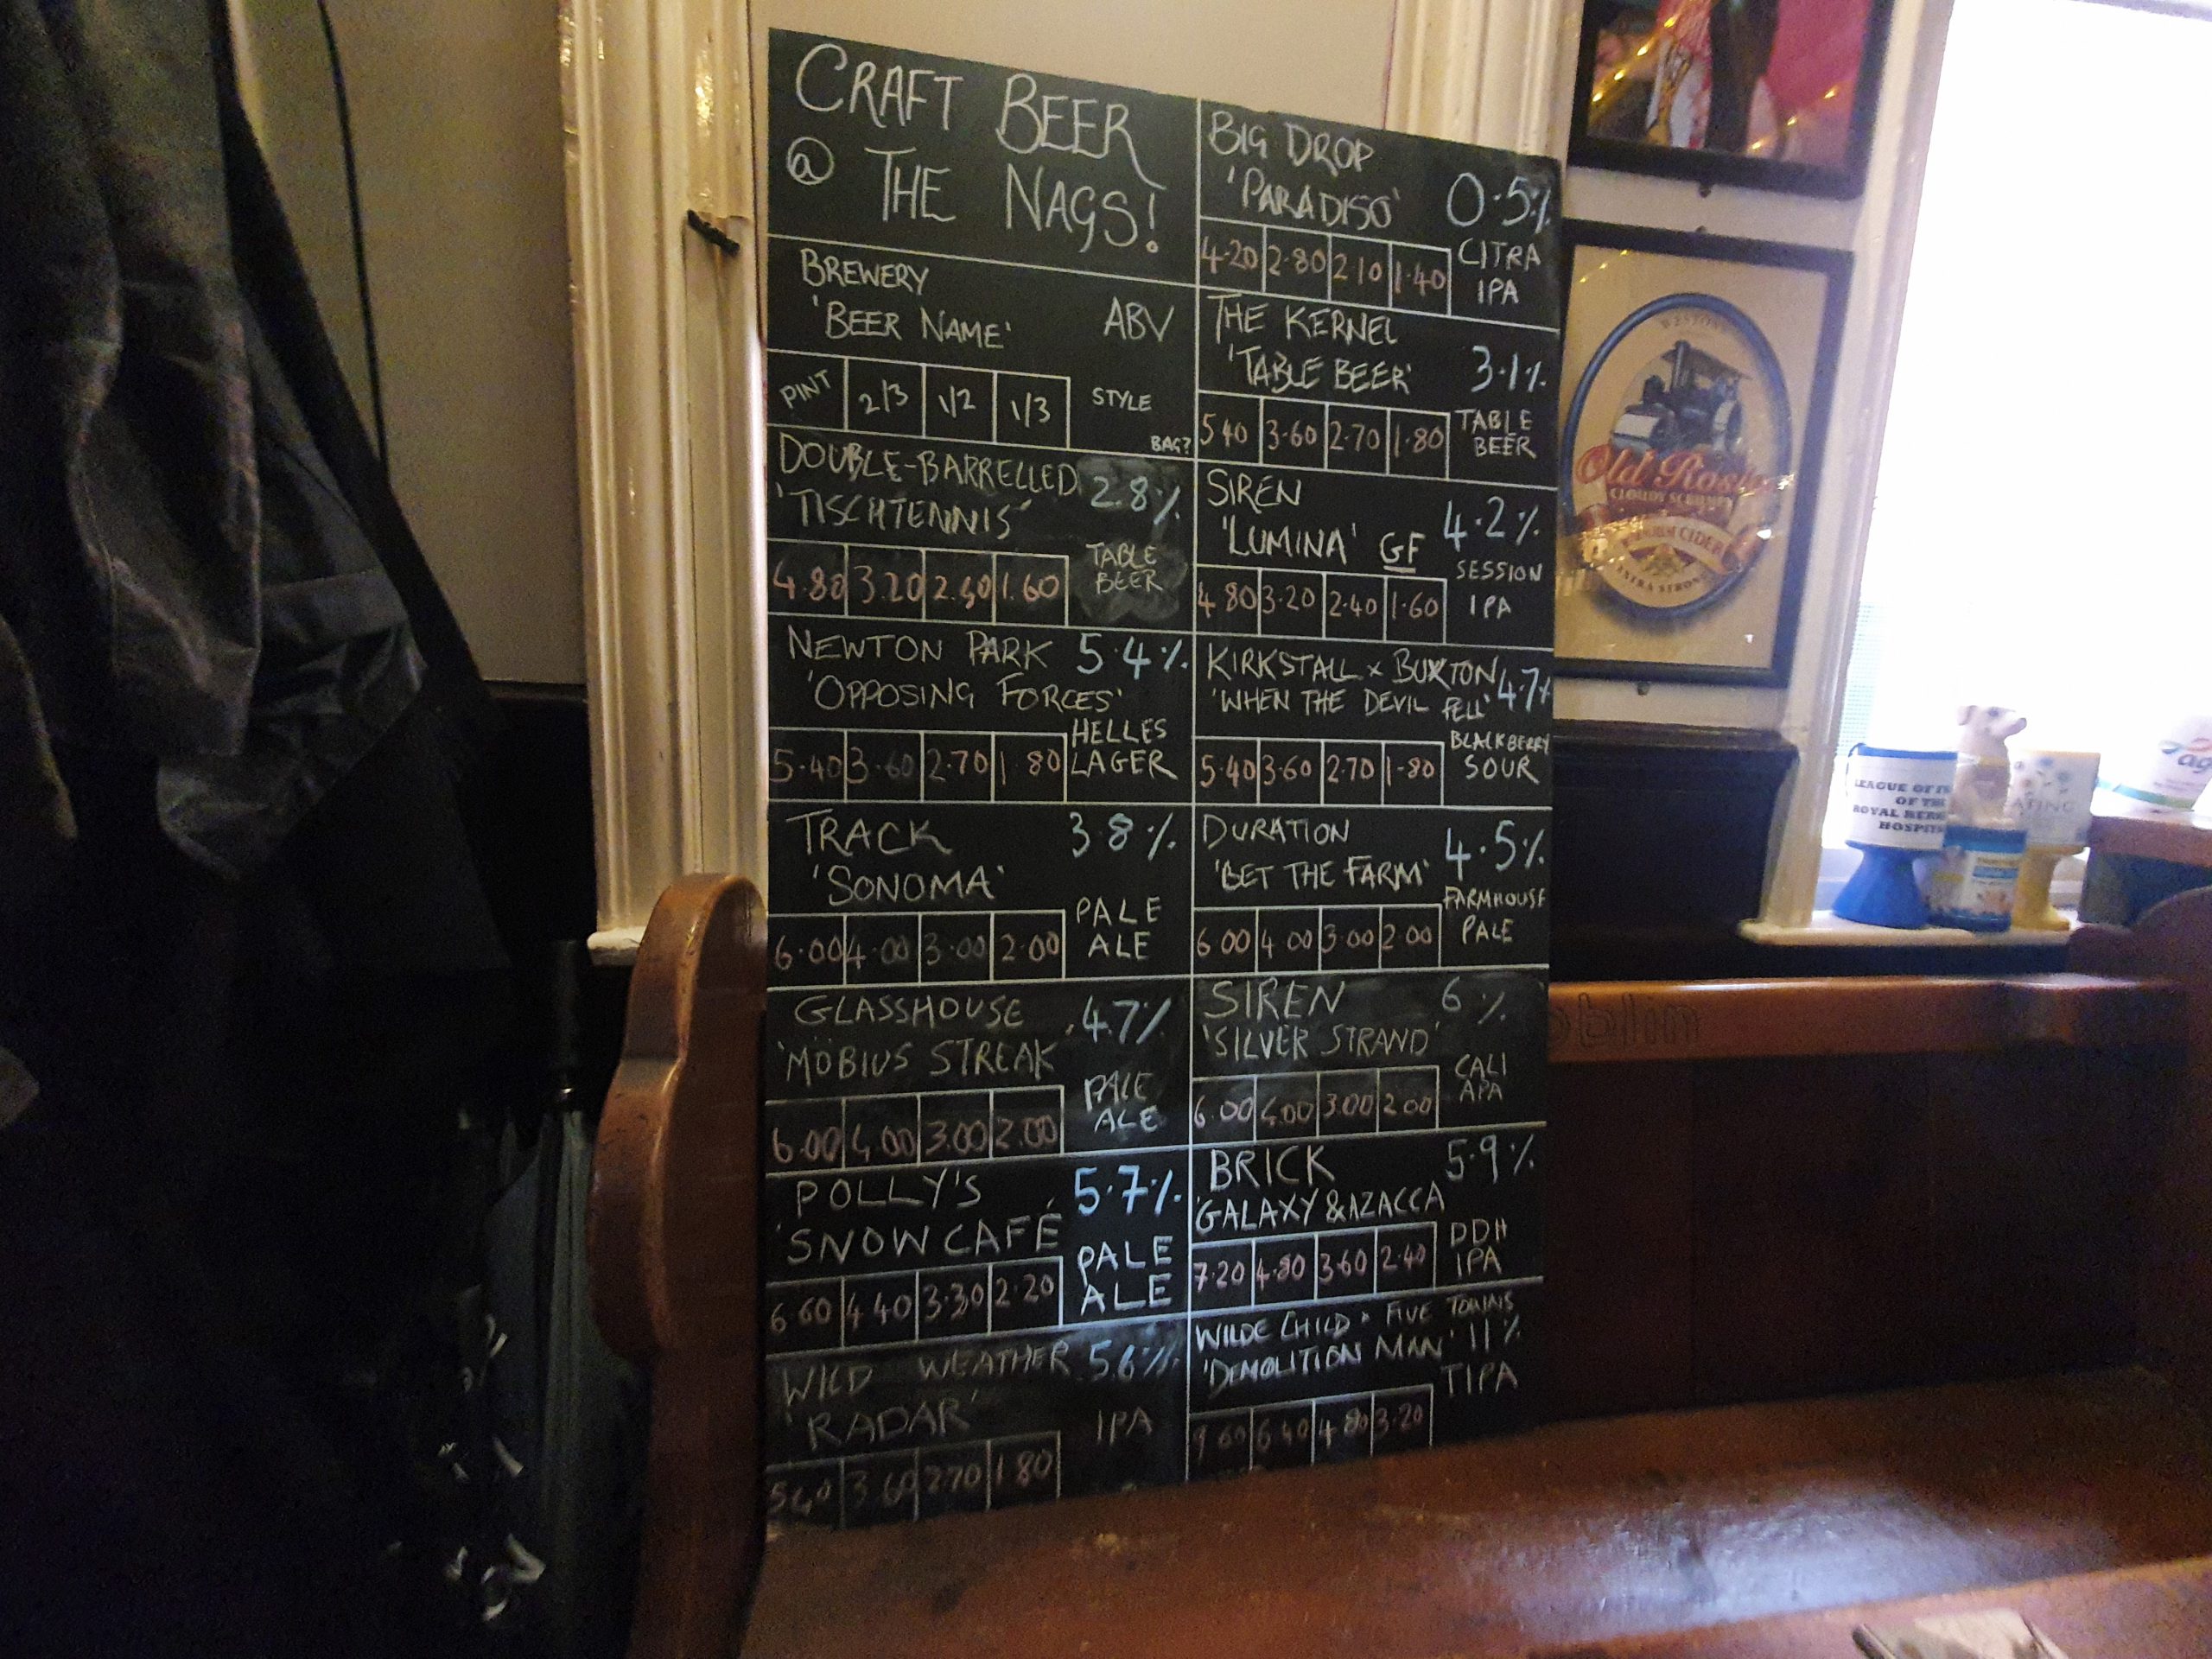 CRAFT BEER
@ THE NAGS!
BREWERY
'BEER NAME' ABV
PINT 2/3 1/2 1/3 STYLE
BAG?
DOUBLE-BARRELLED 2.8%
'TISCHTENNIS'
4.80 3.20 2.40 1.60 TABLE
BEER
NEWTON PARK 5.4%
'OPPOSING FORCES'
5.40 3.60 2.70 1.80 HELLES
LAGER
TRACK 3.8%
'SONOMA'
6.00 4.00 3.00 2.00 PALE
ALE
GLASSHOUSE 4.7%
'MÖBIUS STREAK'
6.00 4.00 3.00 2.00 PALE
ALE
POLLY'S 5.7%
'SNOW CAFÉ
6.60 4.40 3.30 2.20 PALE
ALE
WILD WEATHER 5.6%
'RADAR'
IPA
5.40 3.60 2.70 1.80
BIG DROP
'PARADISO' 0.5%
4.20 2.80 2.10 1.40 CITRA
IPA
THE KERNEL
'TABLE BEER' 3.1%
5.40 3.60 2.70 1.80 TABLE
BEER
SIREN 4.2%
'LUMINA' GF
4.80 3.20 2.40 1.60 SESSION
IPA
KIRKSTALL x BUXTON 4.7%
'WHEN THE DEVIL FELL'
5.40 3.60 2.70 1.80 BLACKBERRY
SOUR
DURATION 4.5%
'BET THE FARM'
6.00 4.00 3.00 2.00 FARMHOUSE
PALE
SIREN 6%
'SILVER STRAND'
6.00 4.00 3.00 2.00 CALI
APA
BRICK 5.9%
'GALAXY & AZACCA
7.20 4.80 3.60 2.40 DDH
IPA
WILDE CHILD x FIVE TOWNS
'DEMOLITION MAN' 11%
TIPA
9.60 6.40 4.80 3.20
Old Rosie
CLOUDY SCRUMPY
CIDER
EXTRA STRONG
LEAGUE OF
OF THE
ROYAL
HOSPIT